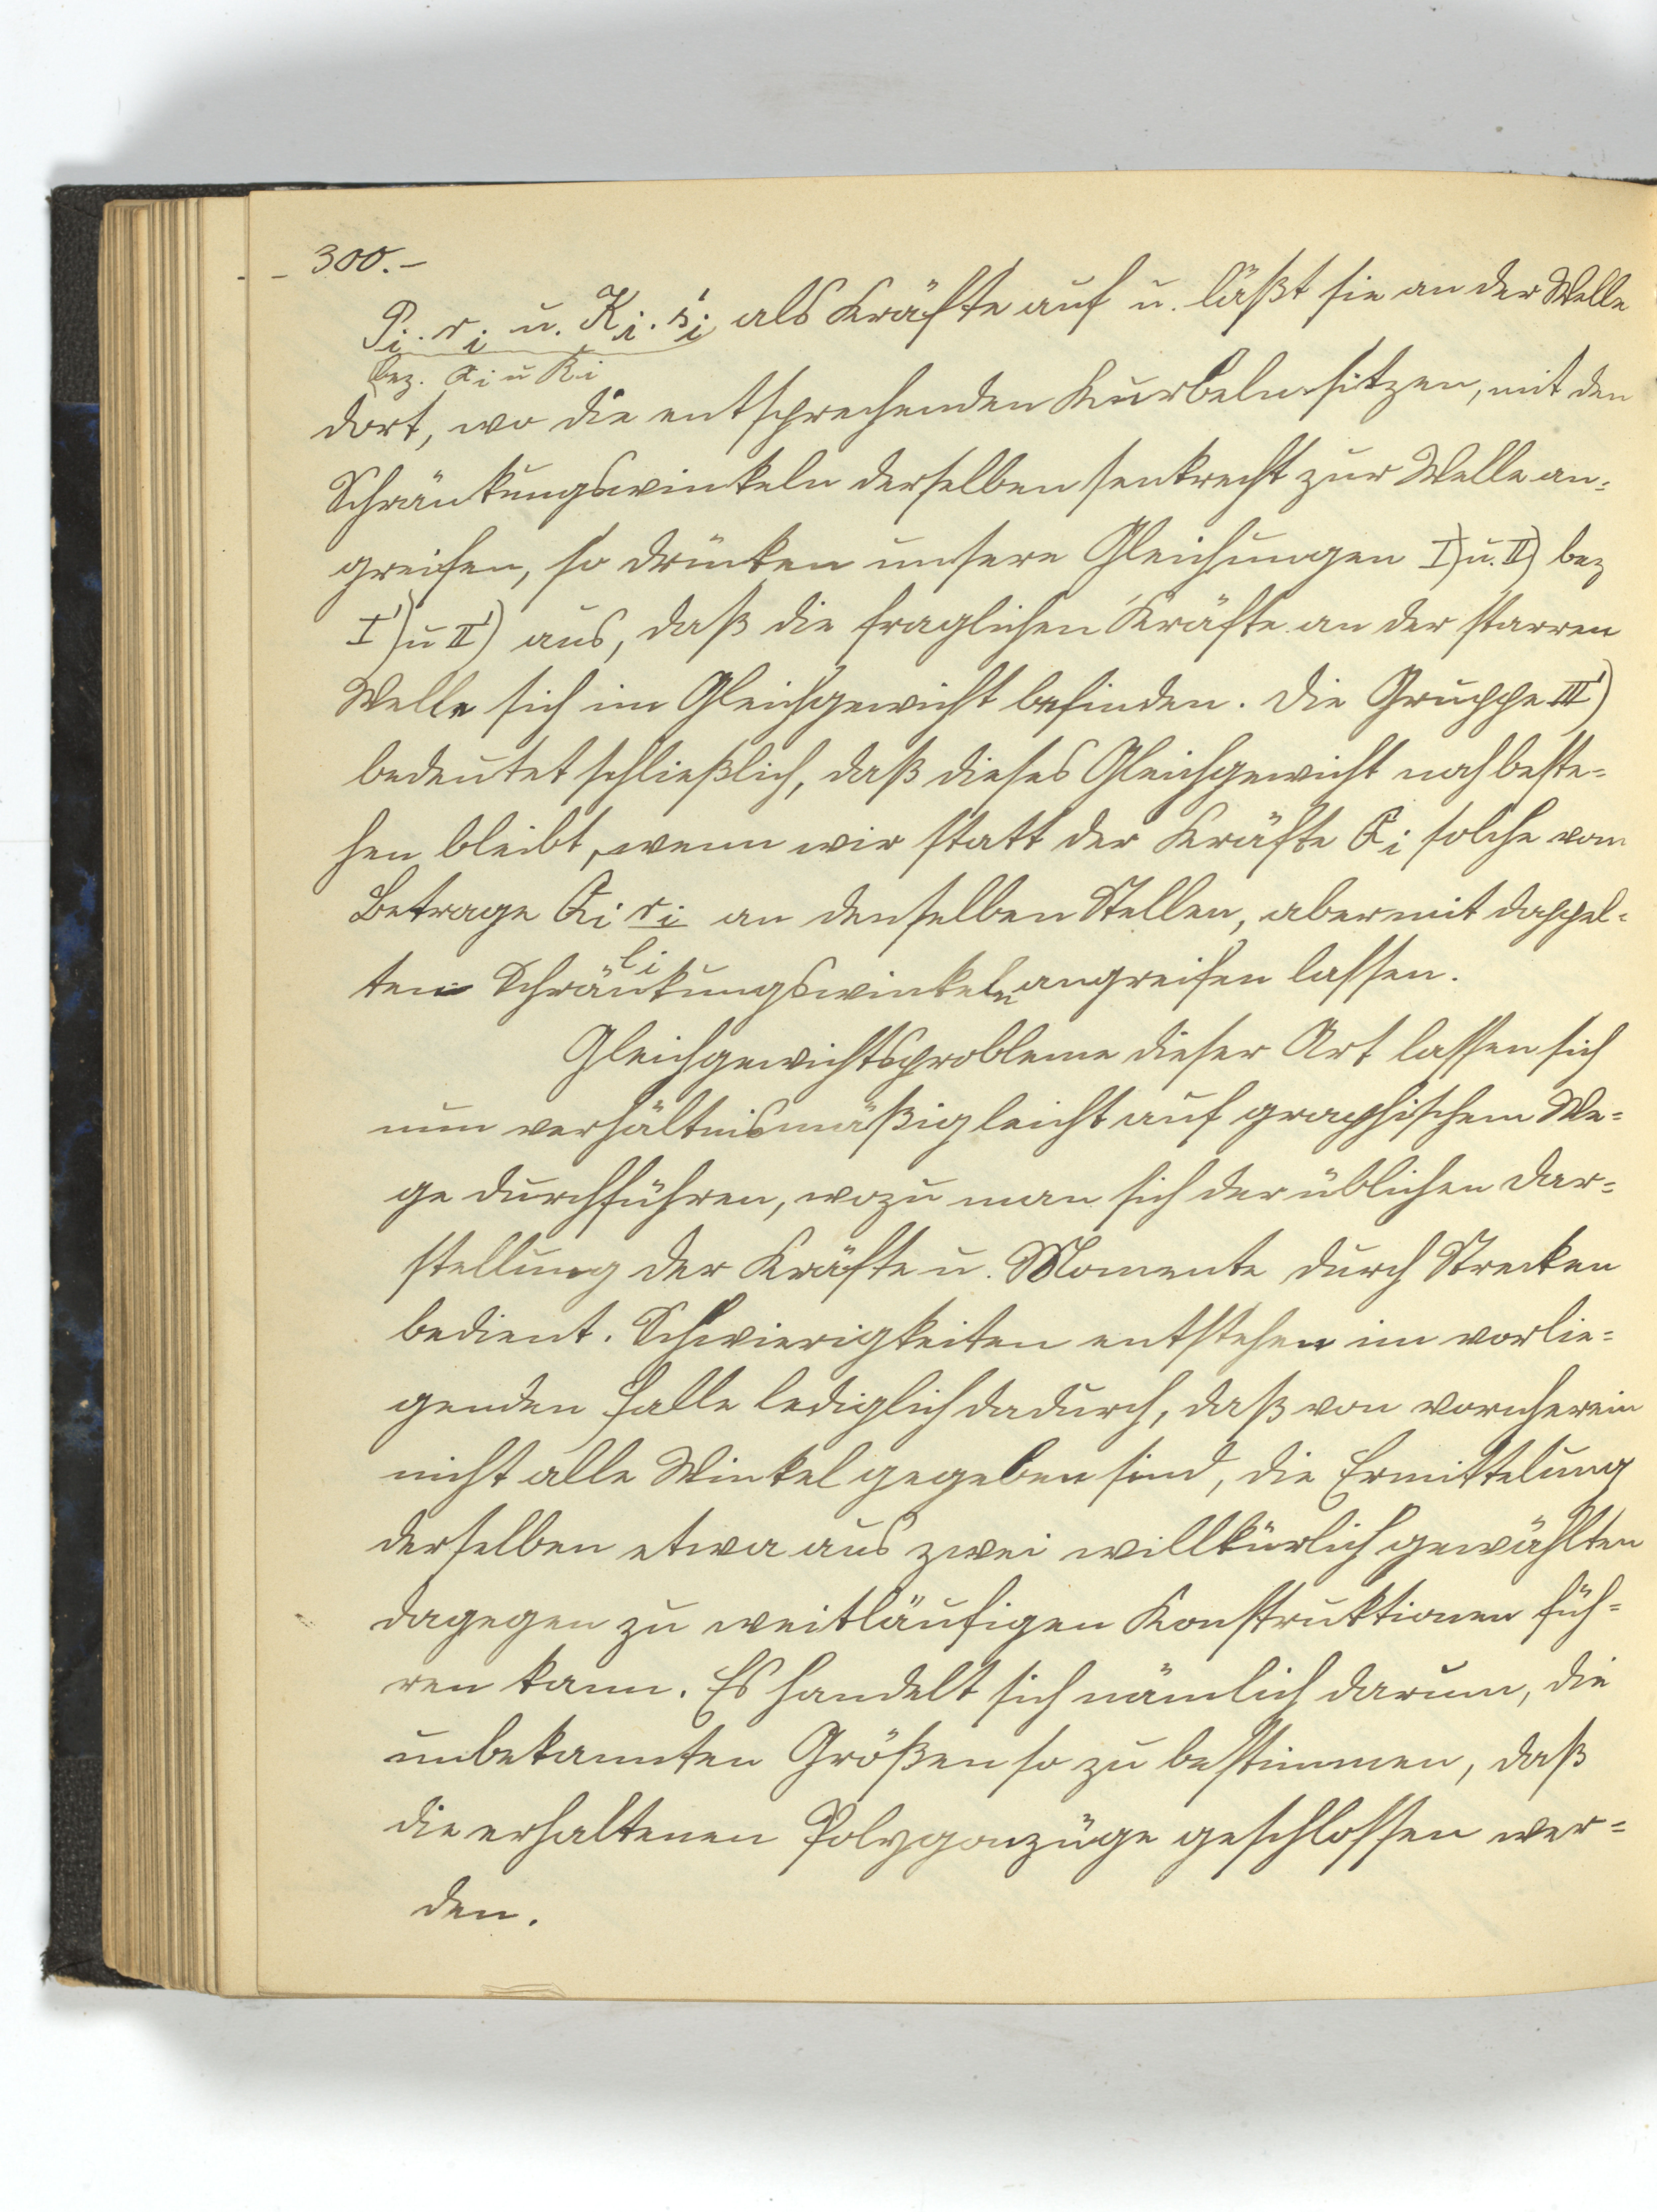 - 300.-
P_i · r_i u. K_i · s'_i als Kräfte auf u. läßt sie an der Welle
bez. Q_i u R_i
dort, wo die entsprechenden Kurbeln sitzen, mit den
Schränkungswinkeln derselben senkrecht zur Welle an=
greifen, so drücken unsere Gleichungen I) u. II) bez
I') u II') aus, daß die fraglichen Kräfte an der starren
Welle sich im Gleichgewicht befinden. Die Gruppe III')
bedeutet schließlich, daß dieses Gleichgewicht noch beste=
hen bleibt, wenn wir statt der Kräfte Q_i solche vom
Betrage Q_i r_i/l_i an denselben Stellen, aber mit doppel=
ten Schränkungswinkeln angreifen lassen.
Gleichgewichtsprobleme dieser Art lassen sich
nun verhältnismäßig leicht auf graphischem We=
ge durchführen, wozu man sich der üblichen Dar=
stellung der Kräfte u. Momente durch Strecken
bedient. Schwierigkeiten entstehen im vorlie=
genden Falle lediglich dadurch, daß von vornherein
nicht alle Winkel gegeben sind, die Ermittelung
derselben etwa aus zwei willkürlich gewählten
dagegen zu weitläufigen Konstruktionen füh=
ren kann. Es handelt sich nämlich darum, die
unbekannten Größen so zu bestimmen, daß
die erhaltenen Polygonzüge geschlossen wer=
den.